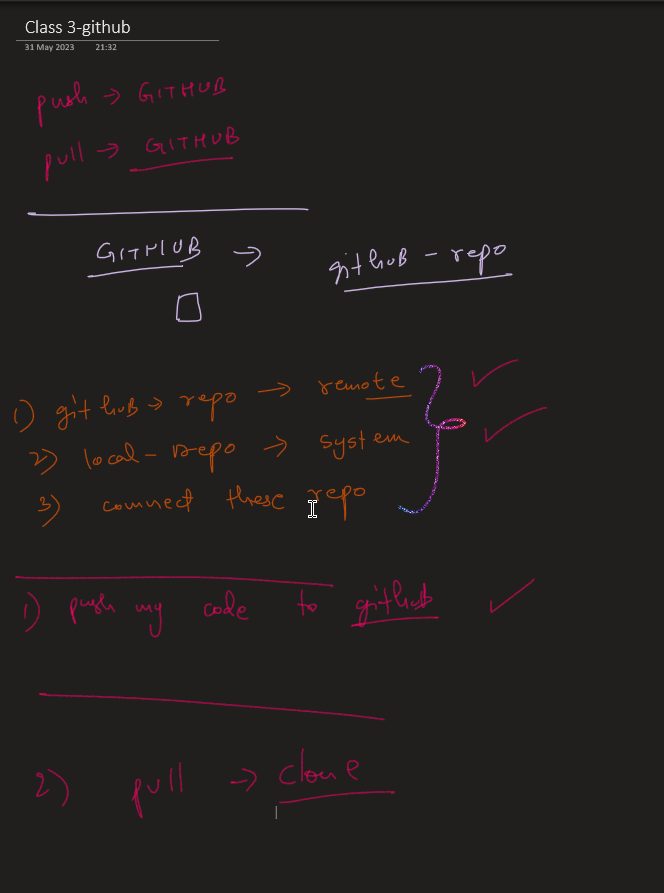 Class 3-github
31 May 2023 21:32
push → GITHUB
pull → GITHUB
GITHUB → github - repo
1) github → repo → remote
2) local - repo → system
3) connect these repo
1) push my code to github
2) pull → clone